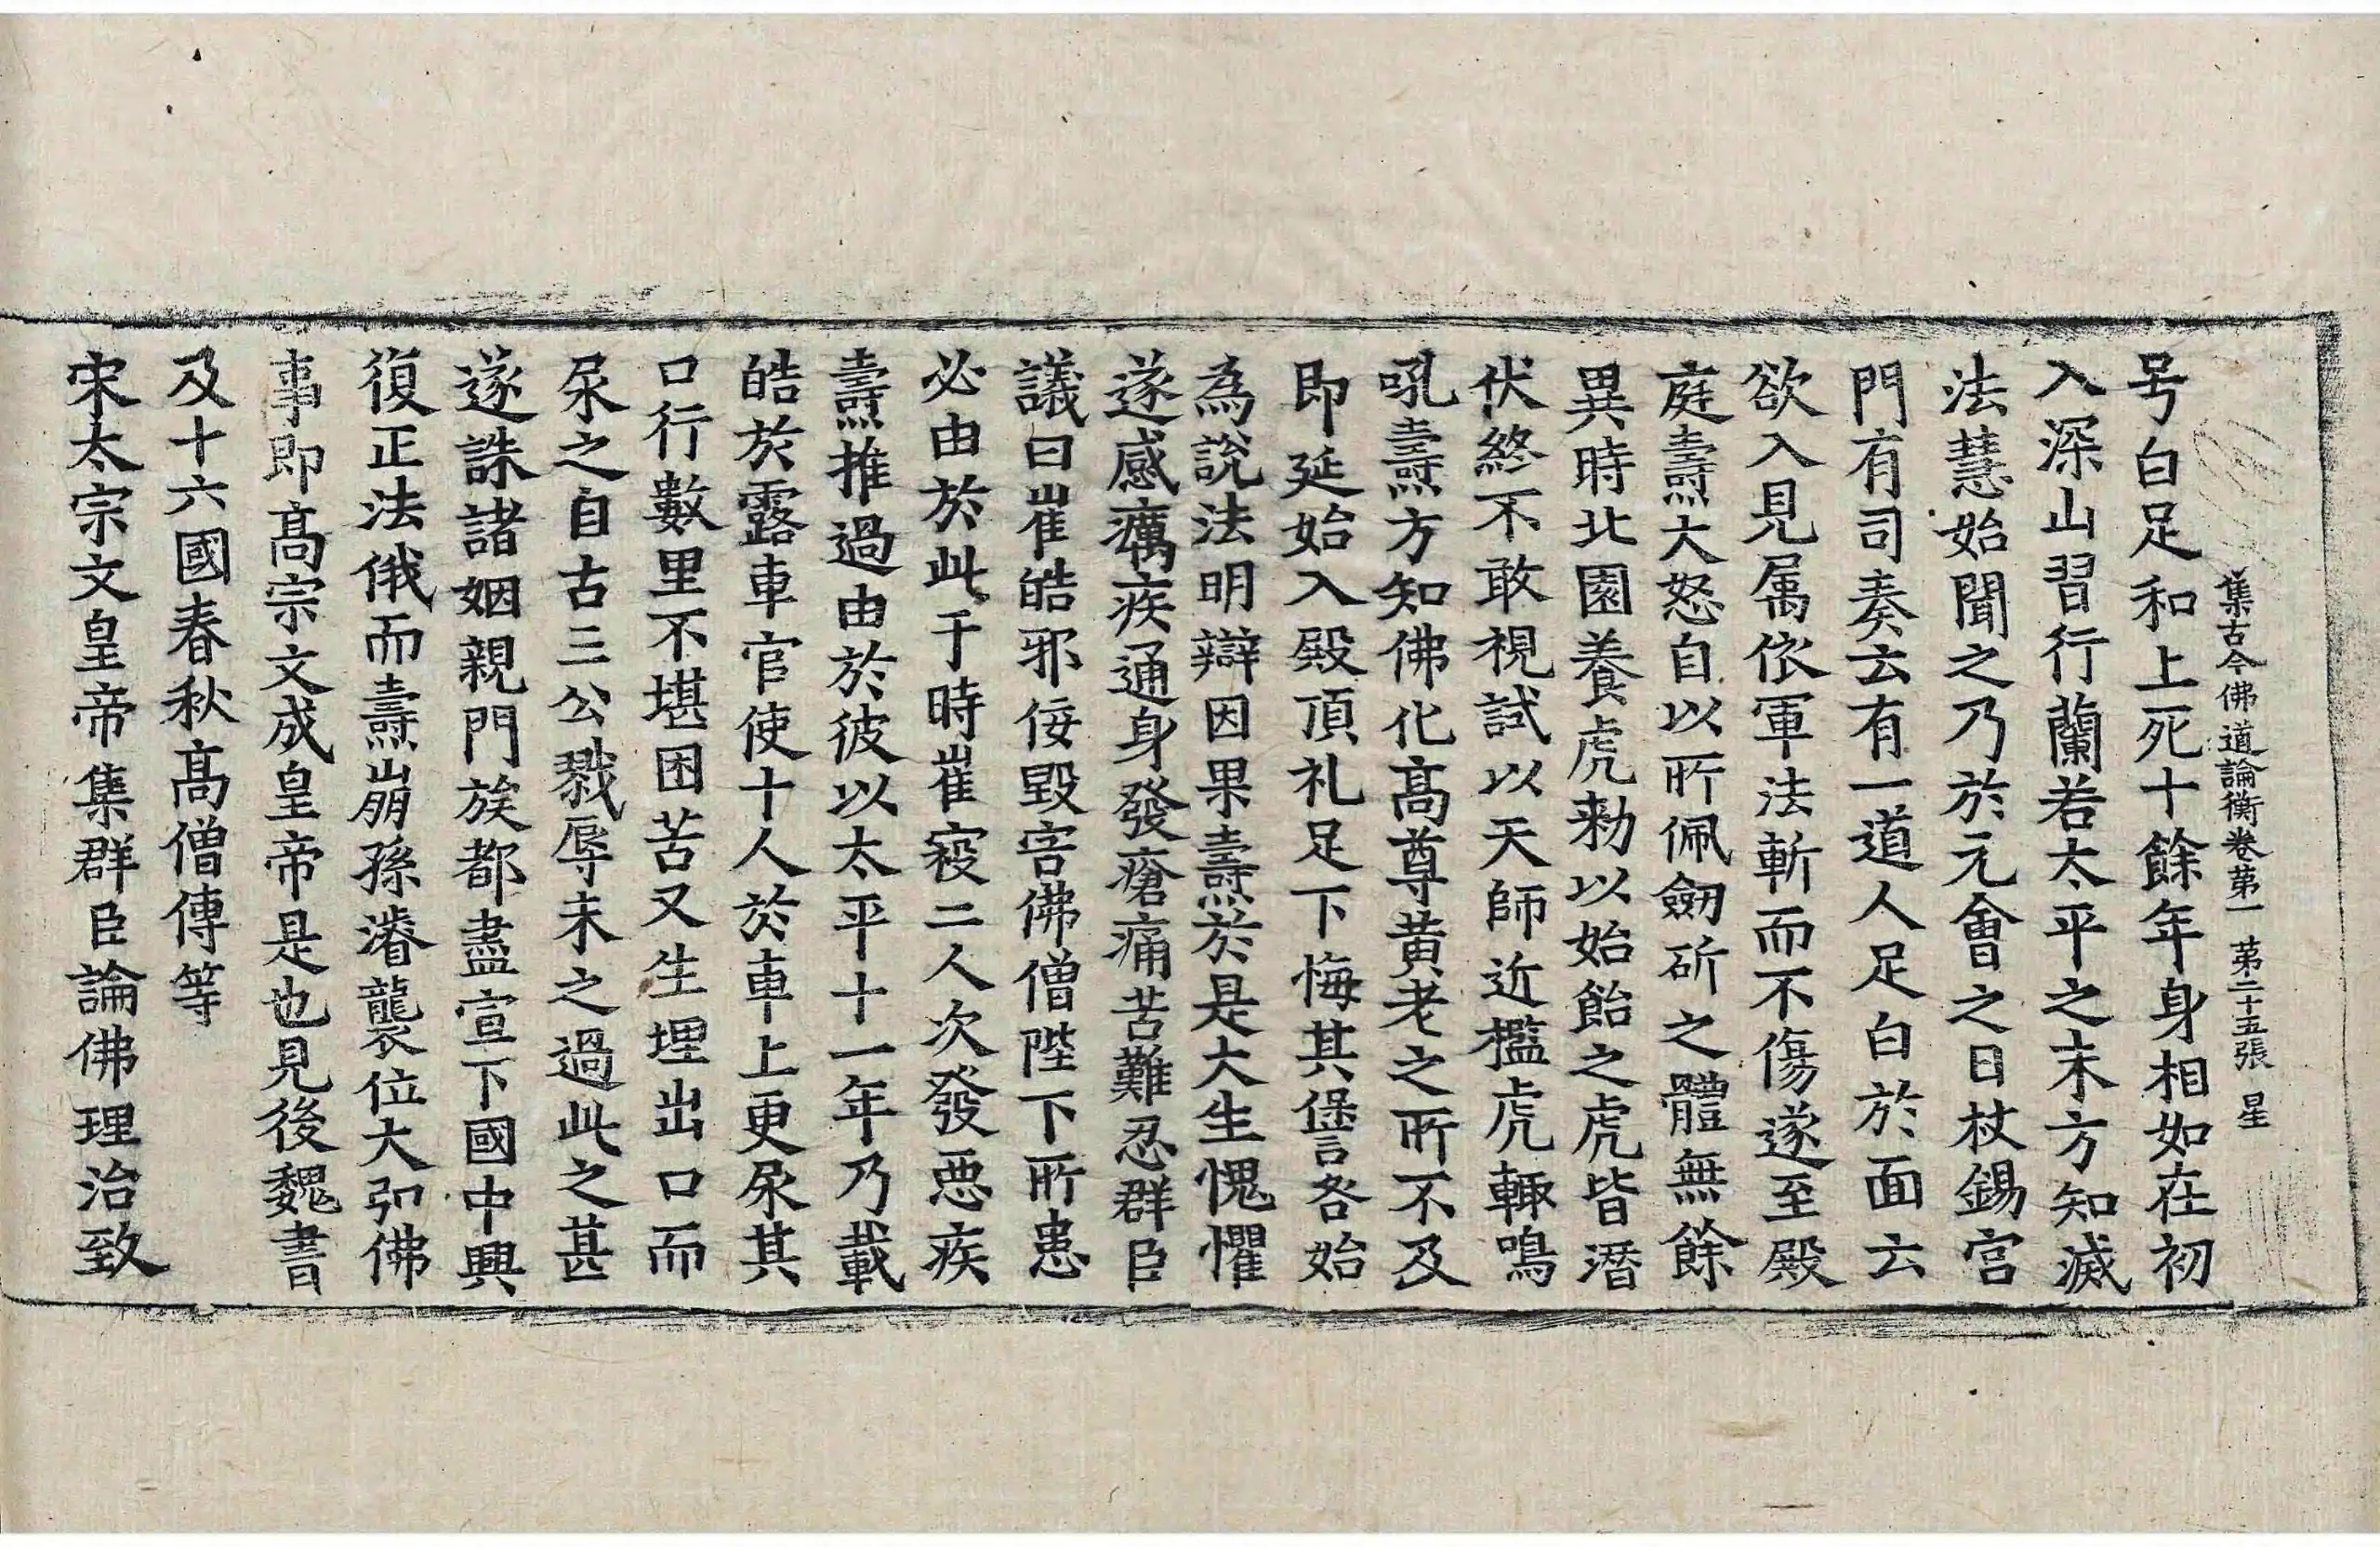 集古今佛道論衡卷第一 第二十五張 星
号白足和上死十餘年身相如在初
入深山習行蘭若太平之末方知滅
法慧始聞之乃於元會之日杖錫宫
門有司奏云有一道人足白於面云
欲入見属依軍法斬而不傷遂至殿
庭燾大怒自以所佩劒斫之體無餘
異時北園養虎勑以始飴之虎皆潛
伏終不敢視試以天師近檻虎輙鳴
吼燾方知佛化髙尊黄老之所不及
即延始入殿頂礼足下悔其𠎝咎始
為說法明辯因果燾於是大生愧懼
遂感癘疾通身發瘡痛苦難忍群臣
議曰崔皓邪佞毀害佛僧陛下所患
必由於此于時崔寇二人次發惡疾
燾推過由於彼以太平十一年乃載
皓於露車官使十人於車上更尿其
口行數里不堪困苦又生埋出口而
尿之自古三公戮辱未之過此之甚
遂誅諸姻親門族都盡宣下國中興
復正法俄而燾崩孫濬襲位大弘佛
事即髙宗文成皇帝是也見後魏書
及十六國春秋髙僧傳等
宋太宗文皇帝集群臣論佛理治致